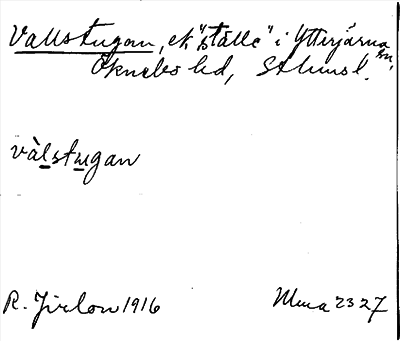 Vallstugan, ett "ställe" i Ytterjärna sn,
Öknebo hd, Sthmsl.
vàlstugan
R. Jirlow 1916
Muua 2327